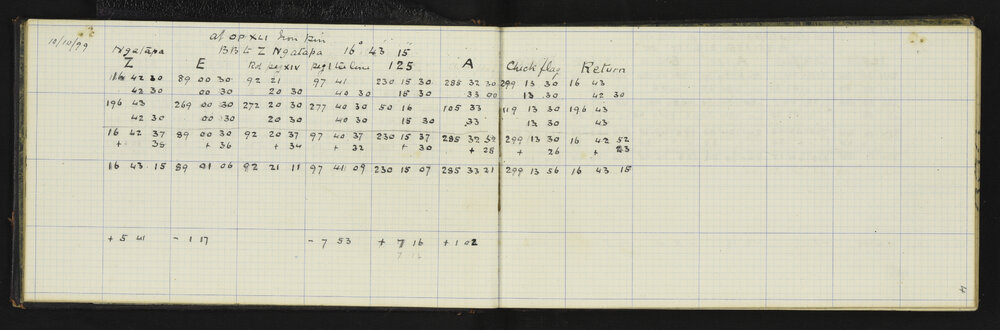 10/10/99
at OP XLI Iron pin
Ngatapa BB to Z Ngatapa 16° 43 15
Z E Rd peg XIV peg 1 tie line 125 A Check flag Return
116 42 30 89 00 30 92 21 97 41 230 15 30 285 32 30 299 13 30 16 43
42 30 00 30 20 30 40 30 15 30 33 00 13 30 42 30
196 43 269 00 30 272 20 30 277 40 30 50 16 105 33 119 13 30 196 43
42 30 00 30 20 30 40 30 15 30 33 13 30 43
16 42 37 89 00 30 92 20 37 97 40 37 230 15 37 285 32 52 299 13 30 16 42 52
+ 38 + 36 + 34 + 32 + 30 + 28 + 26 + 23
16 43 15 89 01 06 92 21 11 97 41 09 230 15 07 285 33 21 299 13 56 16 43 15
+ 5 41 - 1 17 - 7 53 + 7 16 + 1 02
7 16